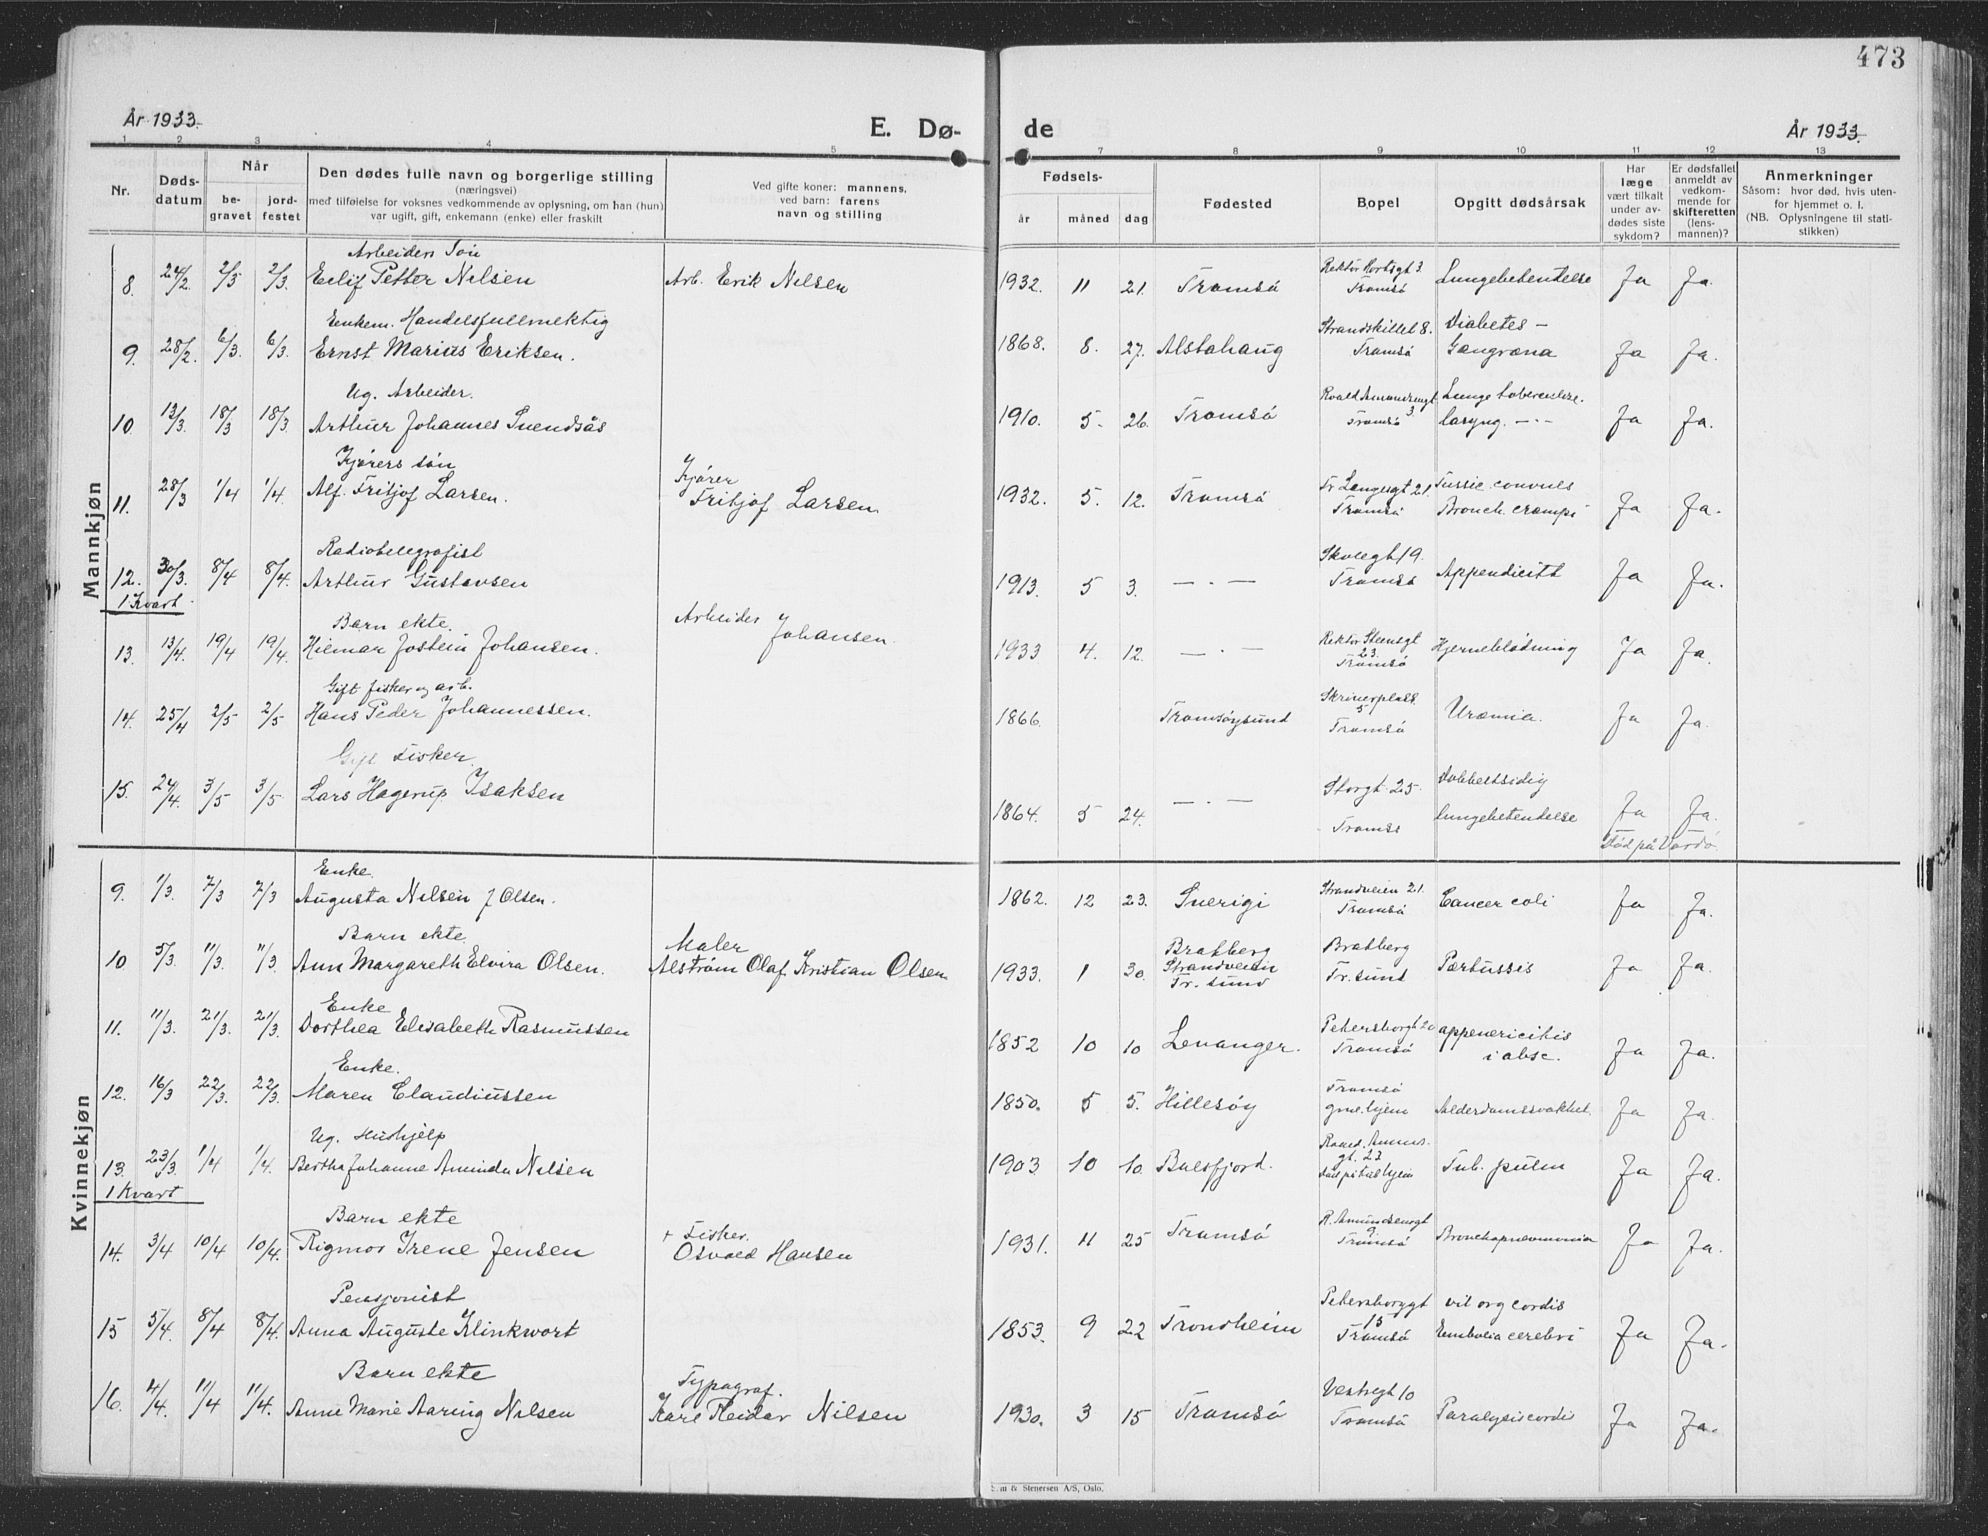 473
År 1933.
E. Dø-
de
År 1933.
1 2 3 4 5 7 8 9 10 11 12 13
Nr.
Døds-
datum
Når
be-
gravet
jord-
festet
Den dødes fulle navn og borgerlige stilling
(næringsvei)
med tilføielse for voksnes vedkommende av oplysning, om han (hun)
var ugift, gift, enkemann (enke) eller fraskilt
Ved gifte koner: mannens,
ved barn: farens
navn og stilling
Fødsels-
år måned dag
Fødested
Bopel
Opgitt dødsårsak
Har
læge
vært tilkalt
under av-
dødes siste
sykdom?
Er dødsfallet
anmeldt av
vedkom-
mende for
skifteretten
(lens-
mannen)?
Anmerkninger
Såsom: hvor død, hvis uten-
for hjemmet o. l.
(NB. Oplysningene til stati-
stikken)
Mannkjøn
Arbeiders søn
8. 24/2 2/3 2/3. Eilif Petter Nilsen Arb. Erik Nilsen 1932. 11 21. Tromsö Rektor Hortsgt 3. Tromsö Lungebetendelse Ja Ja.
Enkem. Handelsfullmektig
9. 28/2. 6/3. 6/3. Ernst Marius Eriksen. 1868. 8. 27. Alstahaug Strandskillet 8. Tromsö Diabetes – Gangræna Ja Ja.
Ug. Arbeider.
10. 13/3. 18/3 18/3. Arthur Johannes Svendsås 1910. 5. 26. Tromsö Roald Amundsengt 3 Tromsö Lungetuberculose. laryng. – · – Ja Ja.
Kjørers søn Kjører
11. 28/3 1/4 1/4. Alf. Fritjof Larsen. Fritjof Larsen. 1932. 5. 12. Tromsö Fr Langesgt 21. Tromsö Tussic. convuls Bronch. crampi Ja Ja.
Radiotelegrafist
12. 30/3. 8/4 8/4. Arthur Gustavsen 1913. 5 3. – · – Skolegt 19. Tromsö Appendicitt Ja Ja.
1 Kvart.
Barn ekte. Arbeider
13. 13/4. 19/4 19/4. Hilmar Jostein Johansen. Johansen. 1933 4. 12. – · – Rektor Steensgt 23. Tromsö Hjerneblödning Ja Ja.
Gift fisker og arb.
14. 25/4 2/5 2/5 Hans Peder Johannessen. 1866. Tromsöysund Skriverplass 5 Tromsö Uræmia. Ja Ja.
Gift Fisker
15. 24/4. 3/5 3/5 Lars Hagerup Isaksen 1864. 5 24. – · – Storgt. 25. Tromsö Dobbeltsidig lungebetendelse Ja Ja.
Död på Vardö
Kvinnekjøn
Enke.
9. 1/3. 7/3 7/3 Augusta Nilsen f Olsen. 1862. 12 23. Sverigi Strandveien 21. Tromsö Cancer coli Ja Ja.
Barn ekte Maler
10 5/3. 11/3. 11/3. Ann Margareth Elvira Olsen. Alström Olaf Kristian Olsen 1933. 1 30. Bratberg Strandveien Tr. sund Bratberg Tr. sund Pertussis Ja Ja.
Enke
11. 11/3. 21/3. 21/3. Dorthea Elisabeth Rasmussen 1852 10 10 Levanger. Petersborgt 20 Tromsö appenericitis i absc. Ja Ja.
Enke.
12. 16/3 22/3. 22/3. Maren Claudiussen 1850. 5 5. Hillesöy Tromsö gml.hjem Alderdomssvakhet. Ja Ja.
Ug. Hushjelp
13. 23/3. 1/4 1/4. Bertha Johanne Aminda Nilsen 1903 10 10. Balsfjord. Roald. Amuns. gt. 23 Tub. pulm Ja Ja.
1 Kvart
Barn ekte + Fisker.
14. 3/4 10/4 10/4. Rigmor Irene Jensen Osvald Hansen 1931. 11 25 Tromsö R. Amundsensgt 9 Tromsö Bronchopneumonia Ja Ja.
Pensjonist
15 5/4. 8/4 8/4. Anna Auguste Klinkwort 1853. 9 22 Trondheim Petersborggt 15 Tromsö vit org cordis Embolia cerebri Ja Ja.
Barn ekte Typograf.
16. 4/4. 11/4 11/4. Anne Marie Aaring Nilsen Karl Reidar Nilsen 1930. 3 15 Tromsö Vestregt 10 Tromsö Paralysis cordis Ja Ja.
& Stenersen A/S, Oslo.